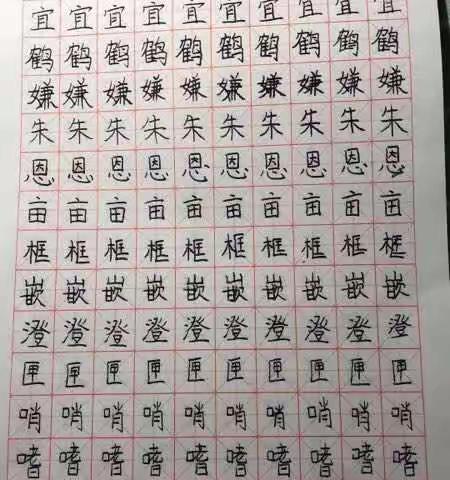 宜宜宜宜宜宜宜宜宜宜
鹤鹤鹤鹤鹤鹤鹤鹤鹤鹤
嫌嫌嫌嫌嫌嫌嫌嫌嫌嫌
朱朱朱朱朱朱朱朱朱朱
恩恩恩恩恩恩恩恩恩恩
亩亩亩亩亩亩亩亩亩亩
框框框框框框框框框框
嵌嵌嵌嵌嵌嵌嵌嵌嵌嵌
澄澄澄澄澄澄澄澄澄澄
匣匣匣匣匣匣匣匣匣匣
哨哨哨哨哨哨哨哨哨哨
嗜嗜嗜嗜嗜嗜嗜嗜嗜嗜